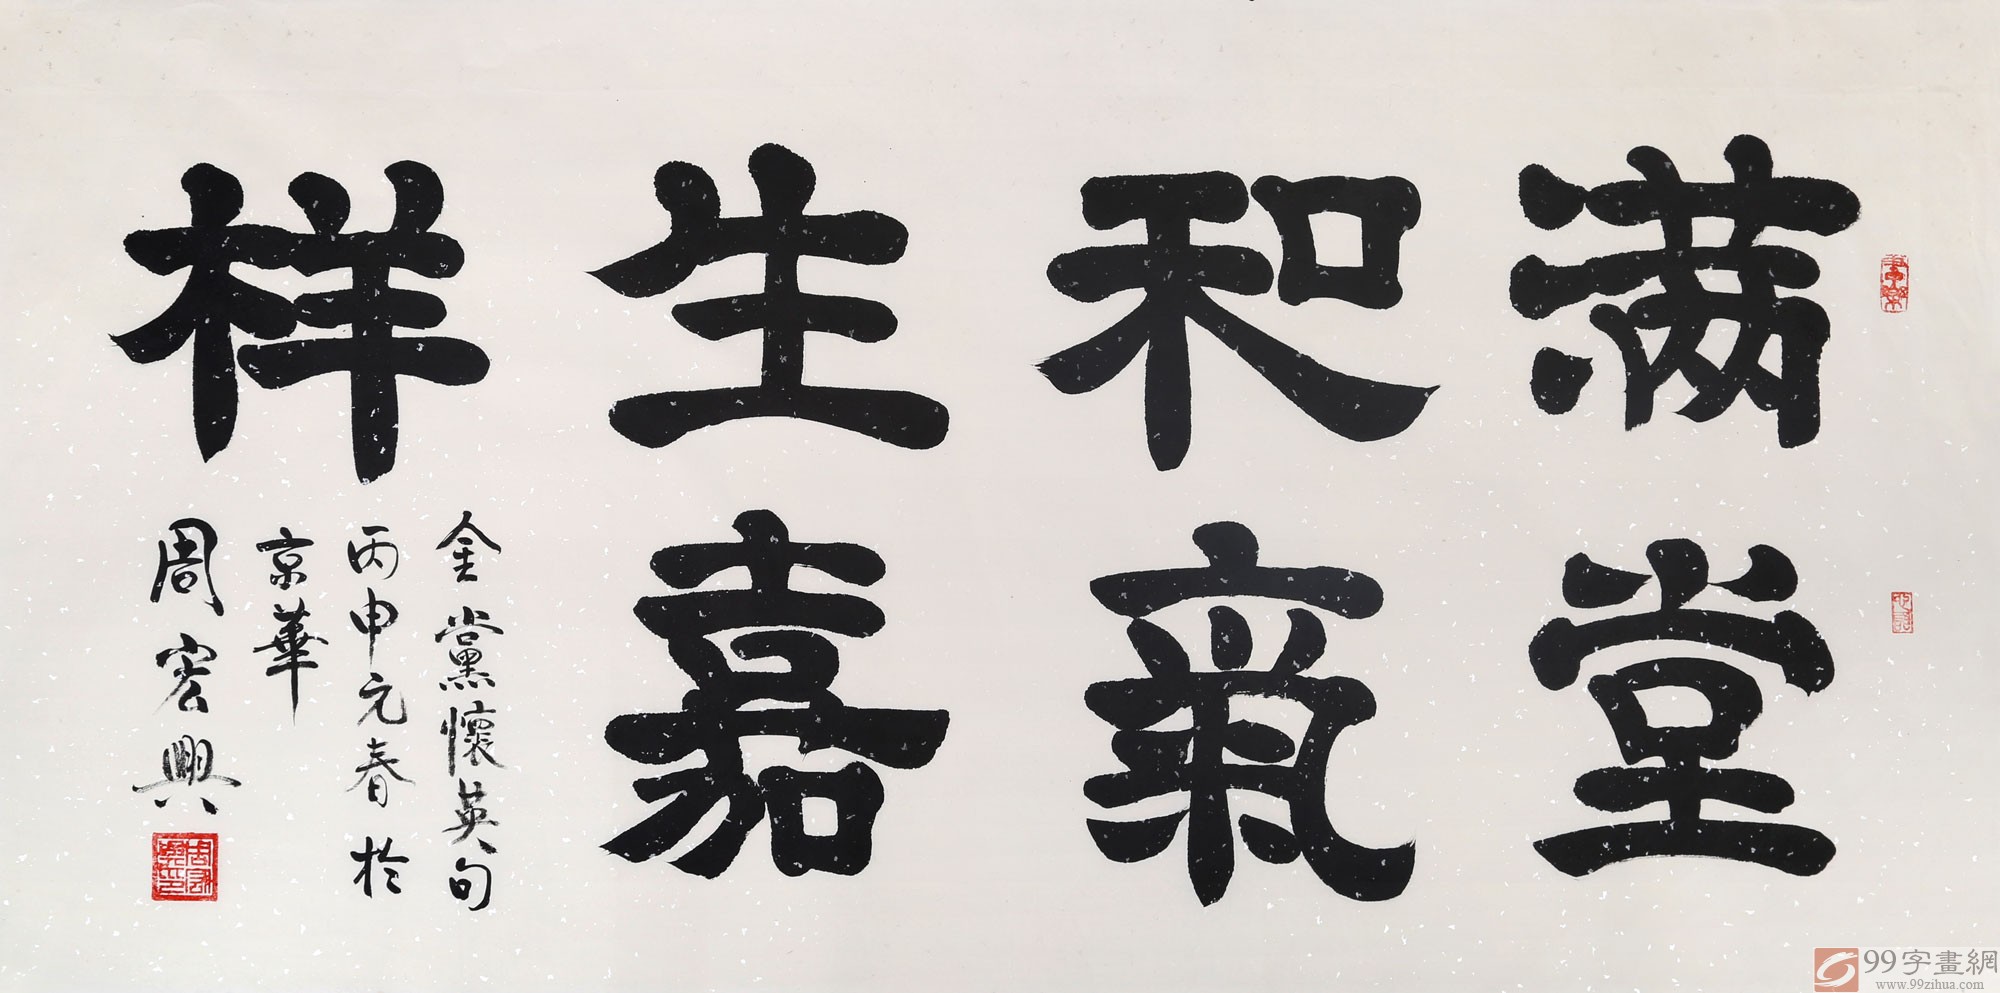 满堂
和氣
生嘉
祥
金黨懷英句
丙申元春於
京華
周宏興
99字畫網
www.99zihua.com